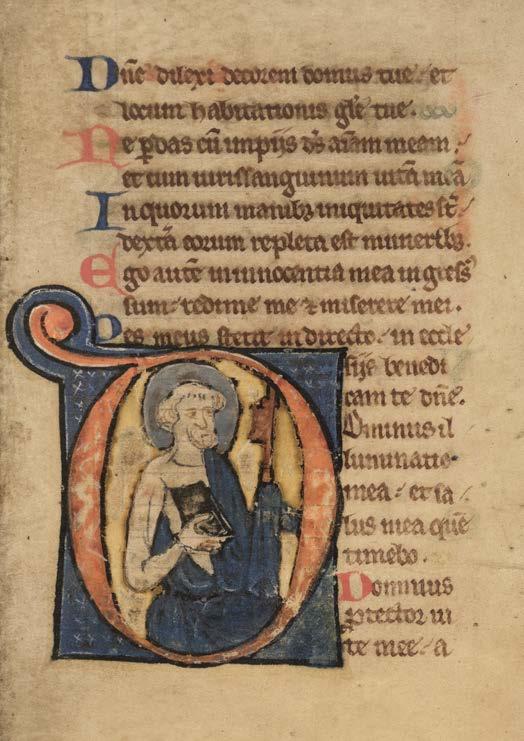 Dñe dilexi decorem domus tue. et
locum habitationis gl̃e tue.
Ne ꝑdas cũ impijs ds̃ aĩam meam.
et cum uiris sanguinum uitã meã
In quorum manibꝫ iniquitates st̃.
dextã eorum repleta est muneribꝫ.
Ego autẽ in innocentia mea ingress̃
sum. redime me ⁊ miserere mei.
Pes meus stetit in directo. in eccle
sijs benedi
cam te dñe.
Dominus il
luminatio
mea. et sa
lus mea quẽ
timebo.
Dominus
ꝓtector ui
te mee. a